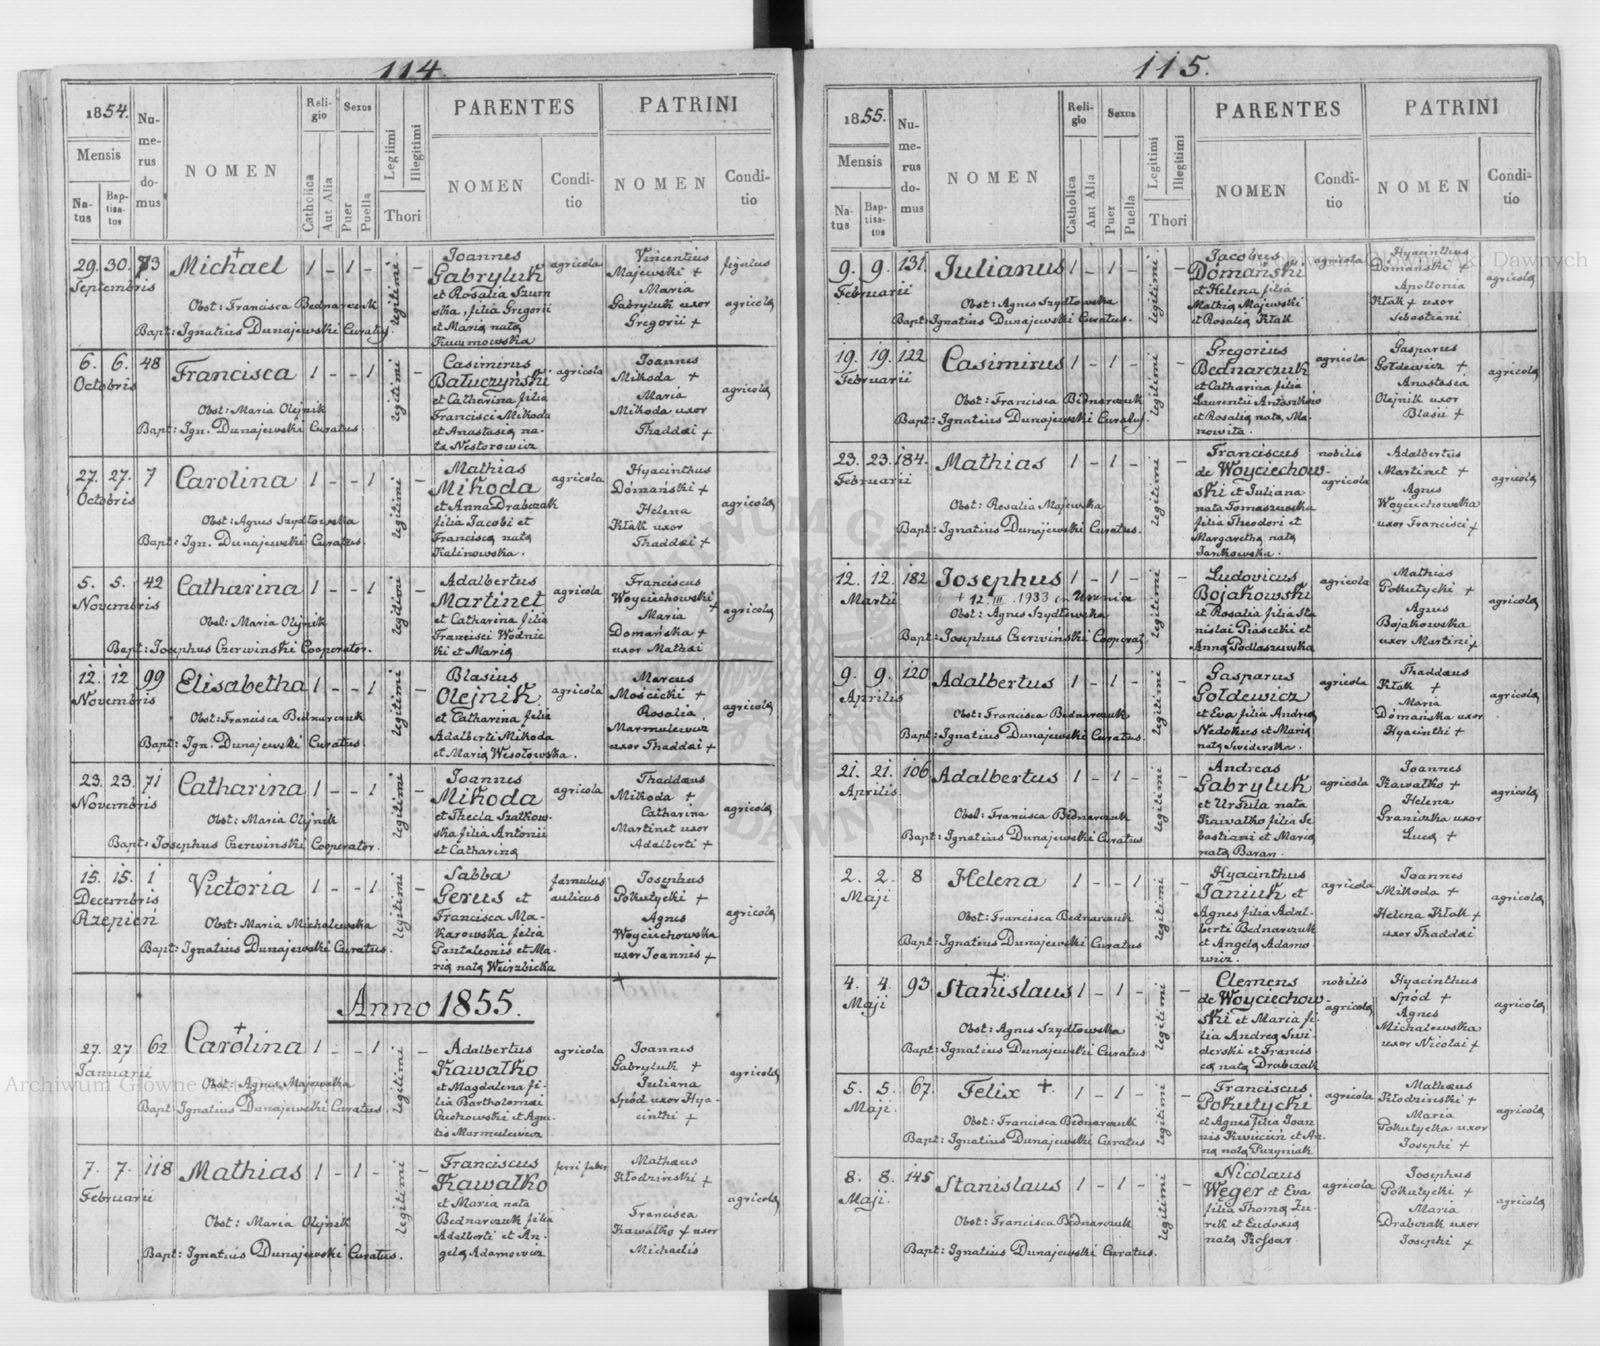 114.
1854.
Mensis
Natus
Baptisatus
Numerus domus
NOMEN
Religio
Catholica
Aut Alia
Sexus
Puer
Puella
Legiimi
Illegitimi
Thori
PARENTES
NOMEN
Conditio
PATRINI
NOMEN
Conditio
29. 30. 73 Michael 1 - 1 - legitimi -
Septembris
Obst: Francisca Bednarczuk
Bapt: Ignatius Dunajewski Curatus.
Joannes
Gabryluk
et Rosalia Szum
ska, filia Gregorii
et Maria nata
agricola
Vincentius
Majewski +
Maria
Gabryluk uxor
Gregorii +
figulus
agricola
6. 6. 48 Francisca 1 - - 1 legitimi -
Octobris
Obst: Maria Olejnik
Bapt: Ign. Dunajewski Curatus.
Casimirus
Batuczyński
et Catharina filia
Francisci Mikoda
et Anastasia na-
ta Nestorowicz
agricola
Joannes
Mikoda +
Maria
Mikoda uxor
Thaddæi +
agricola
27. 27. 7 Carolina 1 - - 1 legitimi -
Octobris
Obst: Agnes Szydłowska
Bapt: Ign. Dunajewski Curatus.
Mathias
Mikoda
et Anna Drabczak
filia Jacobi et
Francisca nata
Kalinowska.
agricola
Hyacinthus
Domański +
Helena
Kłak uxor
Thaddæi +
agricola
5. 5. 42 Catharina 1 - - 1 legitimi -
Novembris
Obst: Maria Olejnik
Bapt: Josephus Czerwinski Cooperator.
Adalbertus
Martinet
et Catharina filia
Francisci Wodnic
ki et Maria
agricola
Franciscus
Woyciechowski +
Maria
Domańska +
uxor Mathæi
agricola
12. 12 99 Elisabetha 1 - - 1 legitimi -
Novembris
Obst: Francisca Bednarczuk
Bapt: Ign. Dunajewski Curatus.
Blasius
Olejnik
et Catharina filia
Adalberti Mikoda
et Maria Wesołowska.
agricola
Marcus
Mościcki +
Rosalia
Marmulewicz
uxor Thaddæi +
agricola
23. 23. 71 Catharina 1 - - 1 legitimi -
Novembris
Obst: Maria Olejnik
Bapt: Josephus Czerwinski Cooperator.
Joannes
Mikoda
et Thecla Szatkow-
ska filia Antonii
et Catharina
agricola
Thaddæus
Mikoda +
Catharina
Martinet uxor
Adalberti +
agricola
15. 15. 1 Victoria 1 - - 1 legitimi -
Decembris
Rzepien
Obst: Maria Michalewska
Bapt: Ignatius Dunajewski Curatus.
Sabba
Gerus et
Francisca Ma-
karowska filia
Pantaleonis et Ma-
ria nata Weirzbicka
famulus
aulicus
Josephus
Pokutycki +
Agnes
Woyciechowska
uxor Joannis +
agricola
Anno 1855.
27. 27 62 Carolina 1 - - 1 legitimi -
Januarii
Obst: Agnes Majewska
Bapt: Ignatius Dunajewski Curatus.
Adalbertus
Kawałko
et Magdalena fi-
lia Bartholomæi
Cuchowski et Agne-
tis Marmulewicz
agricola
Joannes
Gabryluk +
Juliana
Spód uxor Hya-
cinthi +
agricola
7. 7. 118 Mathias 1 - 1 - legitimi -
Februarii
Obst: Maria Olejnik
Bapt: Ignatius Dunajewski Curatus.
Franciscus
Kawałko
et Maria nata
Bednarczuk filia
Adalberti et An-
gela Adamowicz
ferri faber
Mathæus
Kłodzinski +
Francisca
Kawałko + uxor
Michaelis
agricola
115.
1855.
Mensis
Natus
Baptisatus
Numerus domus
NOMEN
Religio
Catholica
Aut Alia
Sexus
Puer
Puella
Legitimi
Illegitimi
Thori
PARENTES
NOMEN
Conditio
PATRINI
NOMEN
Conditio
9. 9. 131. Julianus 1 - 1 - legitimi -
Februarii
Obst: Agnes Szydłowska
Bapt: Ignatius Dunajewski Curatus.
Jacobus
Domański
et Helena filia
Mathia Majewski
et Rosalia Kłak
agricola
Hyacinthus
Domański +
Apollonia
Kłak + uxor
Sebastiani
agricola
19. 19. 122 Casimirus 1 - 1 - legitimi -
Februarii
Obst: Francisca Bednarczuk
Bapt: Ignatius Dunajewski Curatus.
Gregorius
Bednarczuk
et Catharina filia
Laurentii Antonków
et Rosalia nata Ma-
nowita.
agricola
Gasparus
Gołdewicz +
Anastasia
Olejnik uxor
Blasii +
agricola
23. 23. 184. Mathias 1 - 1 - legitimi -
Februarii
Obst: Rosalia Majewska
Bapt: Ignatius Dunajewski Curatus.
Franciscus
de Woyciechow-
ski et Juliana
nata Tomaszewska
filia Theodori et
Margaretha nata
Jankowska.
nobilis
agricola
Adalbertus
Martinet +
Agnes
Woyciechowska
uxor Francisci +
agricola
12. 12. 182 Josephus 1 - 1 - legitimi -
Martii
+ 12. III. 1933 in Urmnia
Obst: Agnes Szydłowska
Bapt: Josephus Czerwiński Cooperat.
Ludovicus
Bojakowski
et Rosalia filia Sta
nislai Piasecki et
Anna Podlaszewska
agricola
Mathias
Pokutycki +
Agnes
Bojakowska
uxor Martini +
agricola
9. 9. 120 Adalbertus 1 - 1 - legitimi -
Aprilis
Obst: Francisca Bednarczuk
Bapt: Ignatius Dunajewski Curatus.
Gasparus
Gołdewicz
et Eva filia Andrea
Nedokus et Maria
nata Swiderska.
agricola
Thaddæus
Kłak +
Maria
Domańska uxor
Hyacinthi +
agricola
21. 21. 106 Adalbertus 1 - 1 - legitimi -
Aprilis
Obst: Francisca Bednarczuk
Bapt: Ignatius Dunajewski Curatus.
Andreas
Gabryluk
et Ursula nata
Kawałko filia Se
bastiani et Maria
nata Baran.
agricola
Joannes
Kawałko +
Helena
Graniczka uxor
Luca +
agricola
2. 2. 8 Helena 1 - - 1 legitimi -
Maji
Obst: Francisca Bednarczuk
Bapt: Ignatius Dunajewski Curatus
Hyacinthus
Janiuk et
Agnes filia Adal-
berti Bednarczuk
et Angela Adamo
wicz.
agricola
Joannes
Mikoda +
Helena Kłak +
uxor Thaddæi
agricola
4. 4. 93 Stanislaus 1 - 1 - legitimi -
Maji
Obst: Agnes Szydłowska
Bapt: Ignatius Dunajewski Curatus
Clemens
de Woyciechow-
ski et Maria fi-
lia Andrea Swi-
derski et Francis-
ca nata Drabczak
nobilis
agricola
Hyacinthus
Spód +
Agnes
Michalewska
uxor Nicolai +
agricola
5. 5. 67. Felix + 1 - 1 - legitimi -
Maji.
Obst: Francisca Bednarczuk
Bapt: Ignatius Dunajewski Curatus
Franciscus
Pokutycki
et Agnes filia Joan
nis Kwiecień et An-
na nata Puzyniak
agricola
Mathæus
Kłodzinski +
Maria
Pokutycka uxor
Josephi +
agricola
8. 8. 145 Stanislaus 1 - 1 - legitimi -
Maji.
Obst: Francisca Bednarczuk
Bapt: Ignatius Dunajewski Curatus.
Nicolaus
Weger et Eva
filia Thoma Zu-
rek et Eudoxia
nata Kossar.
agricola
Josephus
Pokutycki +
Maria
Drabczak uxor
Josephi +
agricola